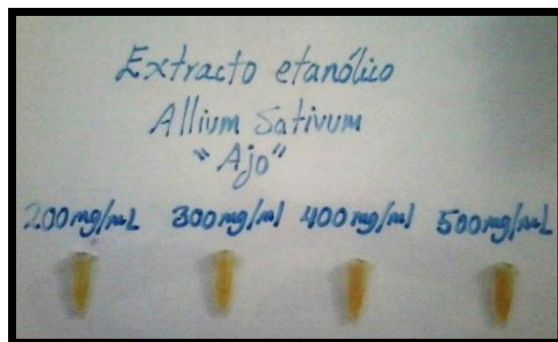 Extracto etanólico
Allium Sativum
"Ajo"
200mg/mL 300mg/ml 400mg/ml 500mg/mL